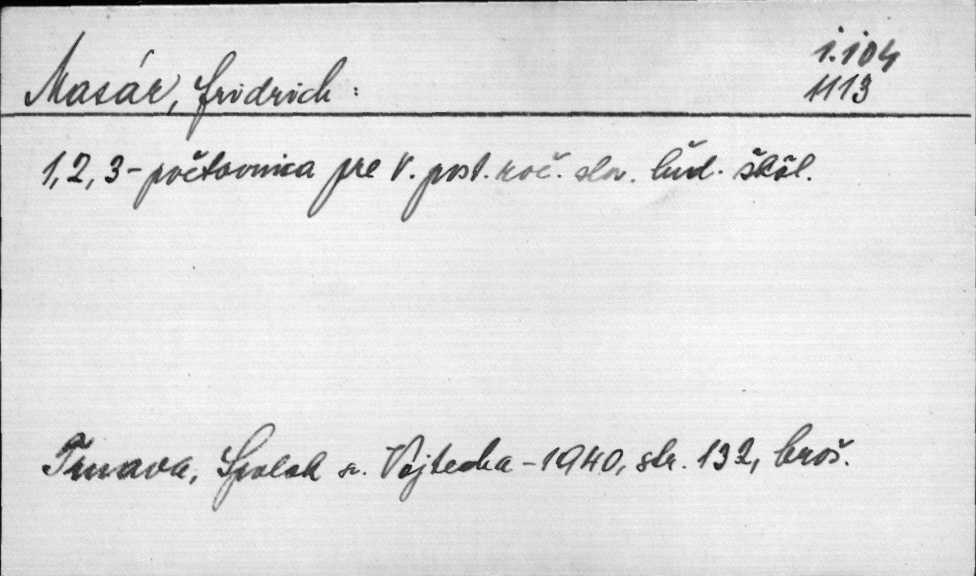 i.104
Masár, Fridrich:
1113
1, 2, 3 - počtovnica pre V. post. roč. slov. ľud. škôl.
Trnava, Spolok sv. Vojtecha - 1940, str. 132, broš.